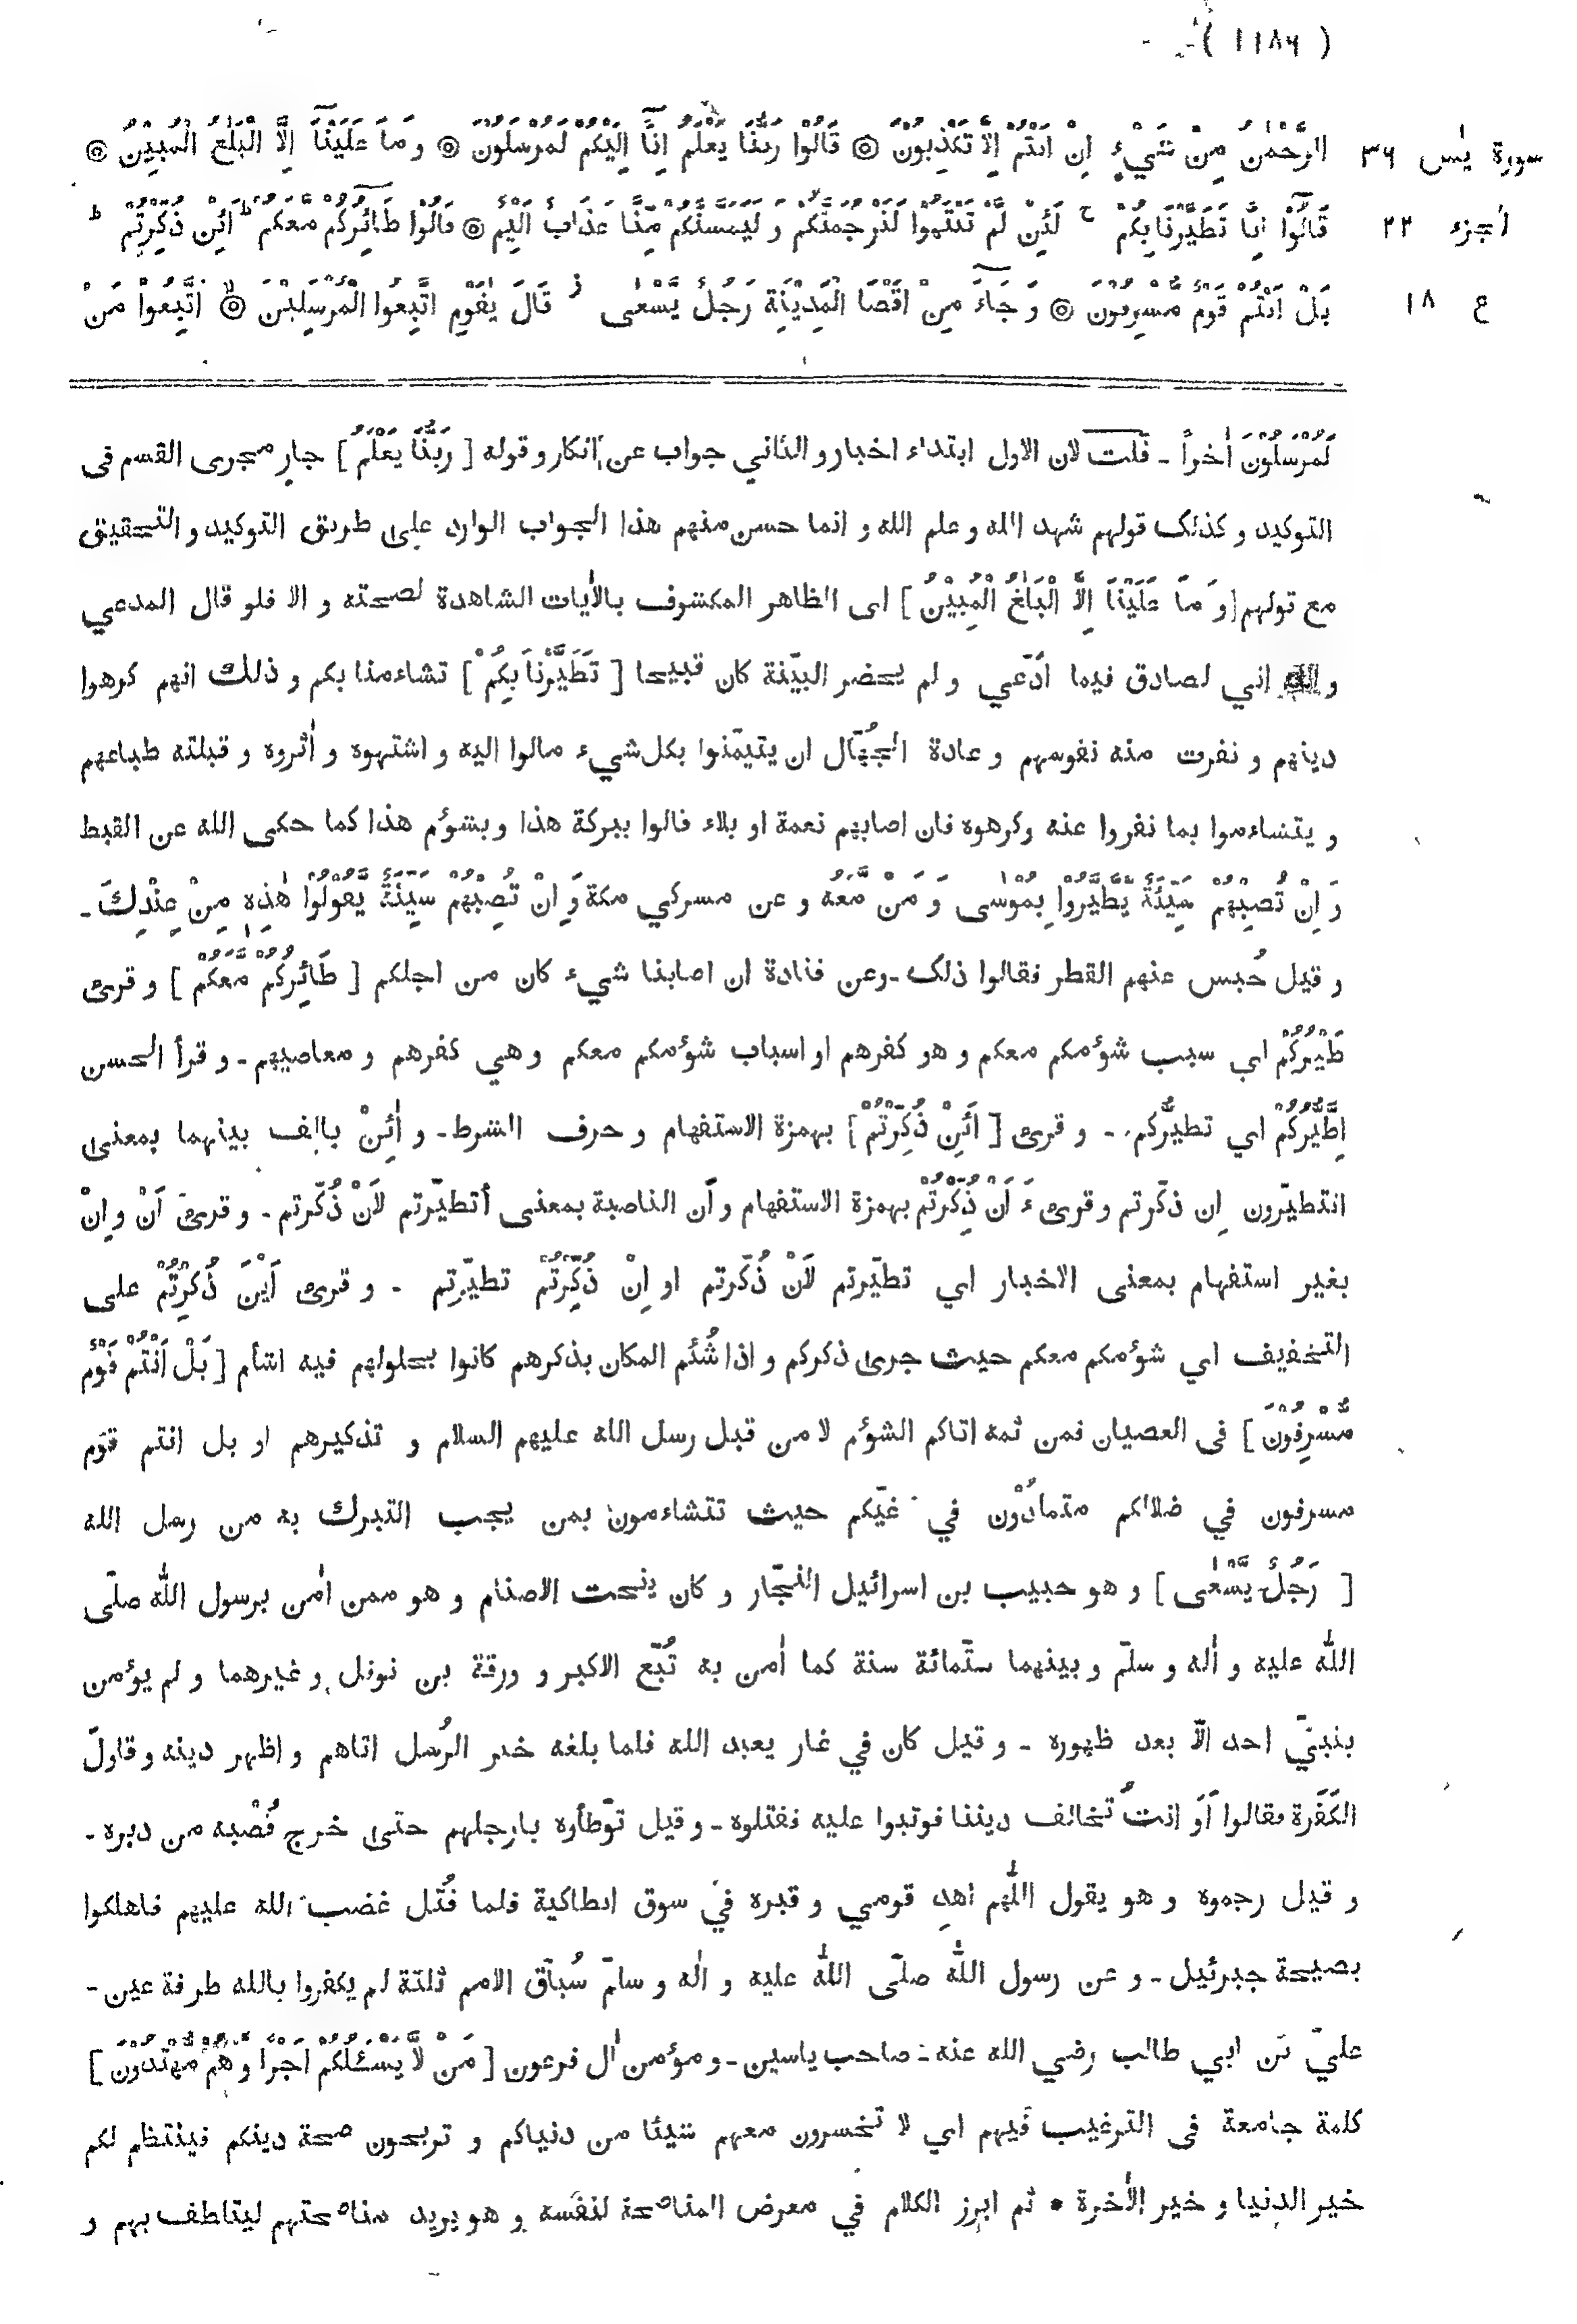 ( ١١٨٦ )
سورة يٰس ٣٦
الجزء ٢٢
ع ١٨
الرَّحْمٰنُ مِنْ شَيْءٍ اِنْ اَنْتُمْ اِلَّا تَكْذِبُوْنَ ۞ قَالُوْا رَبُّنَا يَعْلَمُ اِنَّآ اِلَيْكُمْ لَمُرْسَلُوْنَ ۞ وَ مَا عَلَيْنَآ اِلَّا الْبَلٰغُ الْمُبِيْنُ ۞
قَالُوْٓا اِنَّا تَطَيَّرْنَا بِكُمْ ج لَئِنْ لَّمْ تَنْتَهُوْا لَنَرْجُمَنَّكُمْ وَ لَيَمَسَّنَّكُمْ مِّنَّا عَذَابٌ اَلِيْمٌ ۞ قَالُوْا طَآئِرُكُمْ مَّعَكُمْ ط اَئِنْ ذُكِّرْتُمْ ط
بَلْ اَنْتُمْ قَوْمٌ مُّسْرِفُوْنَ ۞ وَ جَآءَ مِنْ اَقْصَا الْمَدِيْنَةِ رَجُلٌ يَّسْعٰى ز قَالَ يٰقَوْمِ اتَّبِعُوا الْمُرْسَلِيْنَ ۞ اتَّبِعُوْا مَنْ
لَمُرْسَلُوْنَ اٰخراً ـ قلت لان الاول ابتداء اخبار و الثاني جواب عن انكار و قوله [ رَبُّنَا يَعْلَمُ ] جارٍ مجرى القسم فى
التوكيد و كذلك قولهم شهد الله و علم الله و انما حسن منهم هذا الجواب الوارد على طريق التوكيد و التحقيق
مع قولهم [ وَ مَا عَلَيْنَا اِلَّا الْبَلٰغُ الْمُبِيْنُ ] اى الظاهر المكشوف بالاٰيات الشاهدة لصحته و الا فلو قال المدعي
و الله اني لصادق فيما ادّعي و لم يحضر البيّنة كان قبيحا [ تَطَيَّرْنَا بِكُمْ ] تشاءمنا بكم و ذلك انهم كرهوا
دينهم و نفرت منه نفوسهم و عادة الجُهّال ان يتيمّنوا بكل شيء مالوا اليه و اشتهوه و اٰثروه و قبلته طباعهم
و يتشاءموا بما نفروا عنه وكرهوه فان اصابهم نعمة او بلاء قالوا ببركة هذا و بشؤم هذا كما حكى الله عن القبط
وَ اِنْ تُصِبْهُمْ سَيِّئَةٌ يَّطَّيَّرُوْا بِمُوْسٰى وَ مَنْ مَّعَهُ و عن مشركي مكة وَ اِنْ تُصِبْهُمْ سَيِّئَةٌ يَّقُوْلُوْا هٰذِهٖ مِنْ عِنْدِكَ ـ
و قيل حُبس عنهم القطر فقالوا ذلك ـ وعن قتادة ان اصابنا شيء كان من اجلكم [ طَائِرُكُمْ مَّعَكُمْ ] و قرئ
طَيْرُكُمْ اي سبب شؤمكم معكم و هو كفرهم او اسباب شؤمكم معكم و هي كفرهم و معاصيهم ـ و قرأ الحسن
اِطَّيُّرُكُمْ اي تطيُّركم ـ و قرئ [ اَئِنْ ذُكِّرْتُمْ ] بهمزة الاستفهام و حرف الشرط ـ و اٰئِنْ بالف بينهما بمعنى
اتتطيّرون اِن ذكّرتم و قرئ ءَ اَنْ ذُكِّرْتُمْ بهمزة الاستفهام و اَن الناصبة بمعنى أتطيّرتم لَانْ ذُكّرتم ـ و قرئ اَنْ و اِنْ
بغير استفهام بمعنى الاخبار اي تطيّرتم لَانْ ذُكّرتم او اِنْ ذُكِّرْتُمْ تطيّرتم ـ و قرئ اَيْنَ ذُكِرْتُمْ على
التخفيف اي شؤمكم معكم حيث جرى ذكركم و اذا شُئم المكان بذكرهم كانوا بحلولهم فيه اشأم [ بَلْ اَنْتُمْ قَوْمٌ
مُّسْرِفُوْنَ ] فى العصيان فمن ثمه اتاكم الشؤم لا من قبل رسل الله عليهم السلام و تذكيرهم او بل انتم قوم
مسرفون في ضلالكم متمادُوْن في غيّكم حيث تتشاءمون بمن يجب التبرك به من رسل الله
[ رَجُلٌ يَّسْعٰى ] و هو حبيب بن اسرائيل النجّار و كان ينحت الاصنام و هو ممن اٰمن برسول اللّٰه صلّى
اللّٰه عليه و اٰله و سلّم و بينهما ستّمائة سنة كما اٰمن به تُبّع الاكبر و ورقة بن نوفل و غيرهما و لم يؤمن
بنبيّ احد الّا بعد ظهوره ـ و قيل كان في غار يعبد الله فلما بلغه خبر الرُسل اتاهم و اظهر دينه و قاولَ
الكَفَرة فقالوا اَوَ انت تُخالف ديننا فوثبوا عليه فقتلوه ـ و قيل توّطأوه بارجلهم حتى خرج قُصْبه من دبره ـ
و قيل رجموه و هو يقول اللّٰهم اهدِ قومي و قبره في سوق انطاكية فلما قُتل غضب الله عليهم فاهلكوا
بصيحة جبرئيل ـ و عن رسول اللّٰه صلّى اللّٰه عليه و اٰله و سلّم سُبّاق الامم ثلثة لم يكفروا بالله طرفة عين ـ
عليّ بن ابي طالب رضي الله عنه ـ صاحب ياسين ـ و مؤمن اٰل فرعون [ مَنْ لَّا يَسْئَلُكُمْ اَجْرًا وَّ هُمْ مُّهْتَدُوْنَ ]
كلمة جامعة فى الترغيب فيهم اي لا تخسرون معهم شيئا من دنياكم و تربحون صحة دينكم فينتظم لكم
خير الدنيا و خير الاٰخرة • ثم ابرز الكلام في معرض المناصحة لنفسه و هو يريد مناصحتهم ليتلطف بهم و